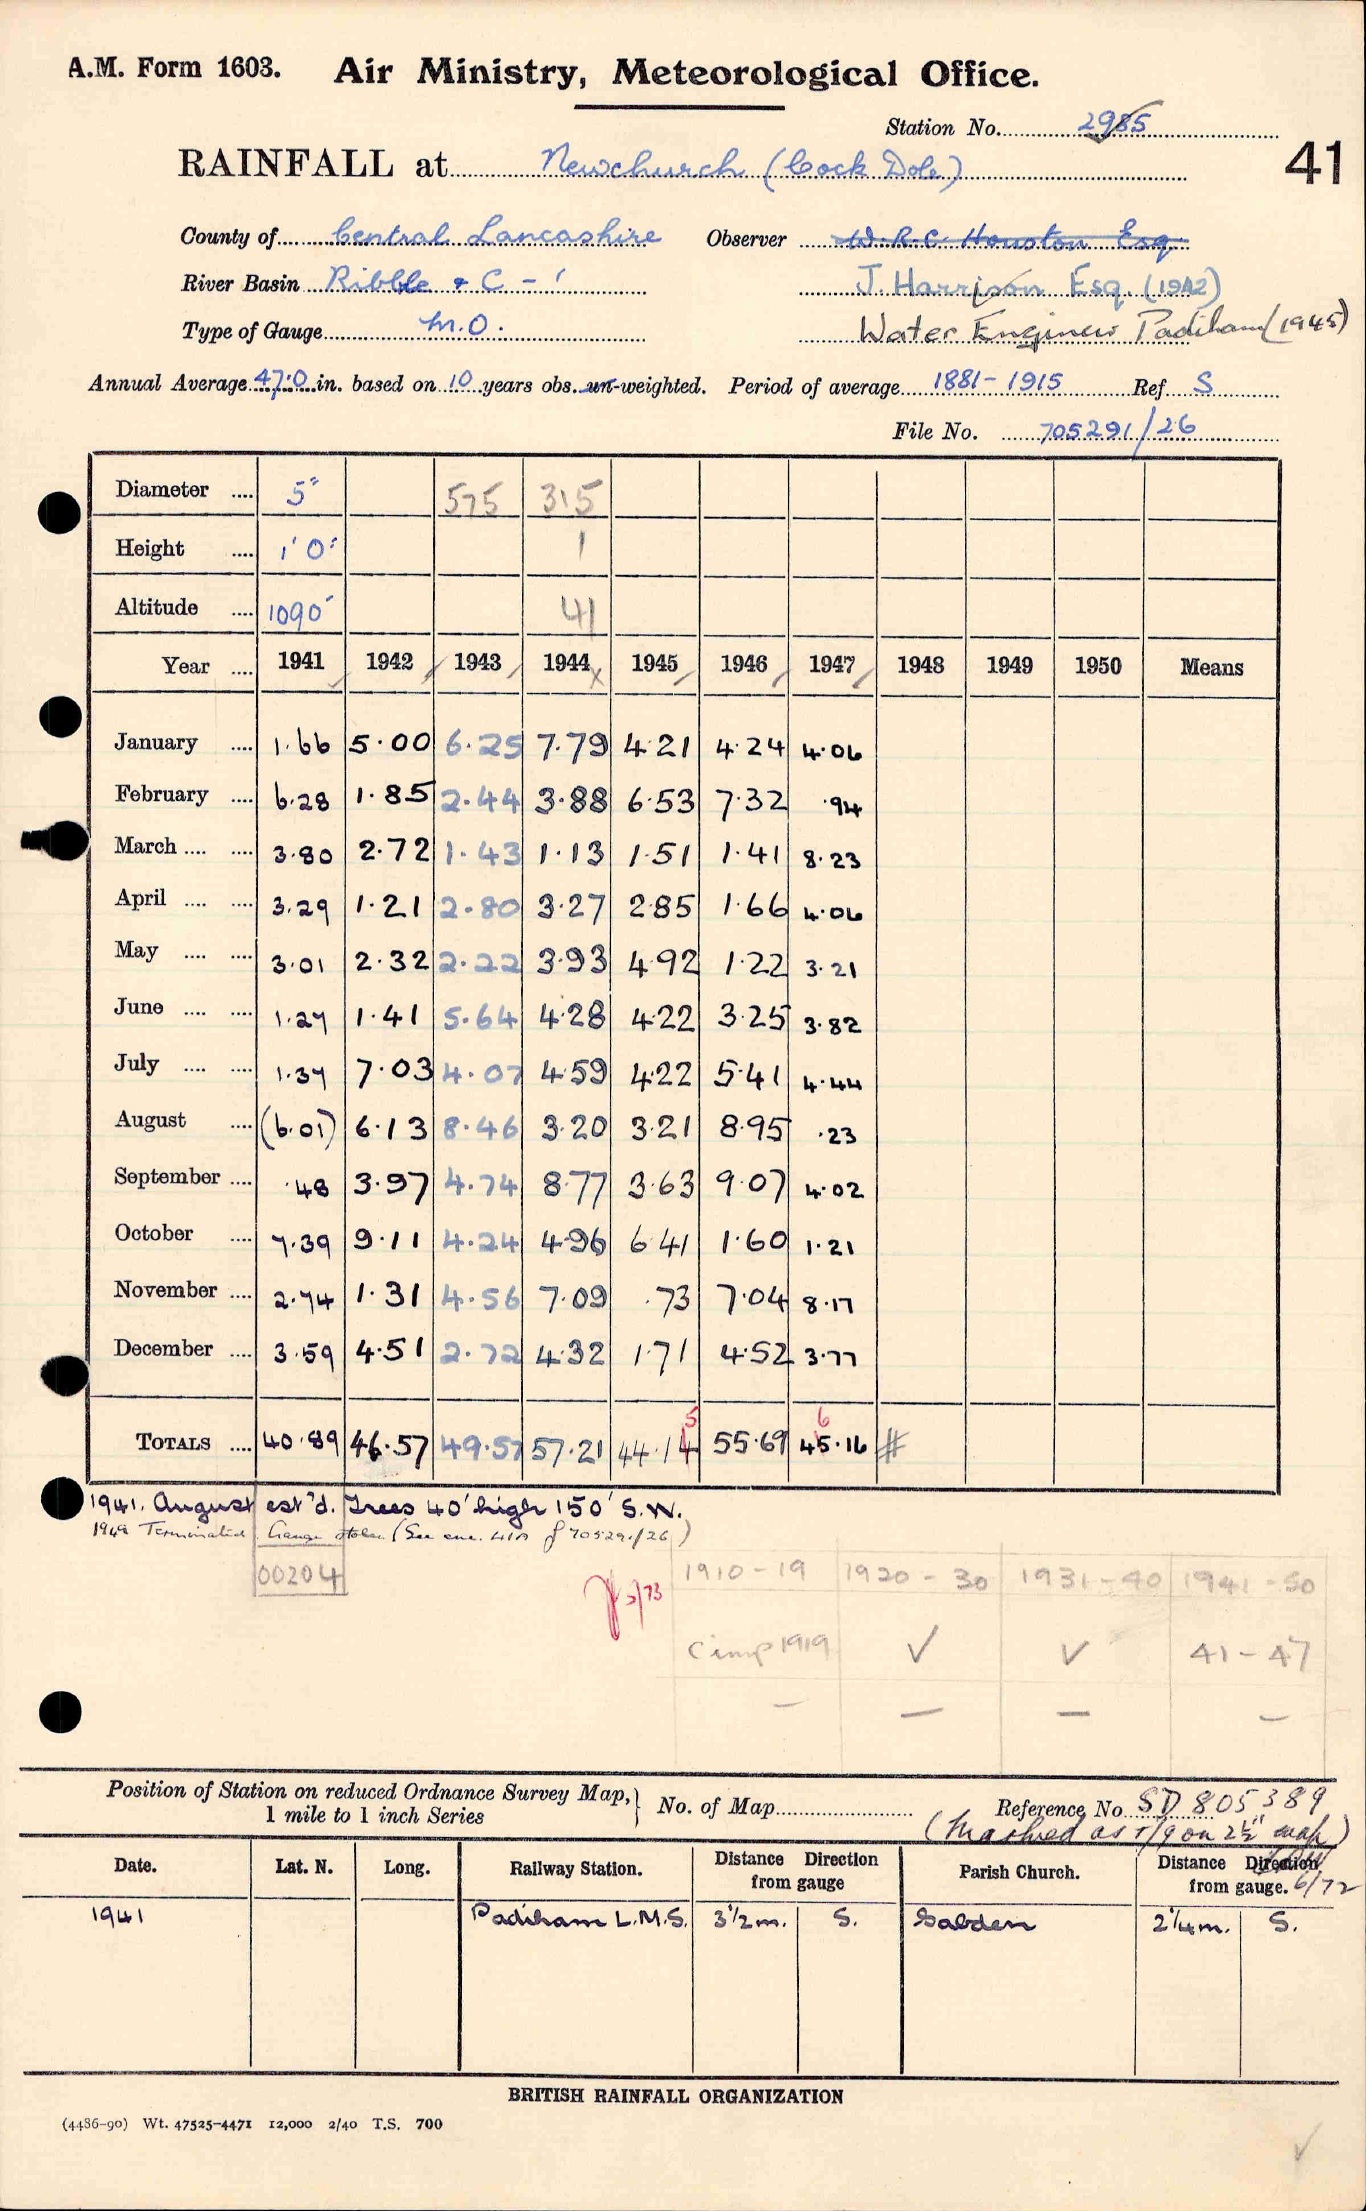 A.M. Form 1603. Air Ministry, Meteorological Office.
Station No. 2985
41
RAINFALL at Newchurch (Cock Dole)
County of Central Lancashire Observer W.R.C. Houston Esq.
River Basin Ribble & C - ' J. Harrison Esq. (1942)
Type of Gauge M.O. Water Engineer Padiham (1945)
Annual Average 47.0 in. based on 10 years obs. un-weighted. Period of average 1881-1915 Ref S
File No. 705291/26
Diameter .... 5" 575 315
Height .... 1' 0" 1
Altitude .... 1090' 41
Year .... 1941 1942 1943 1944 1945 1946 1947 1948 1949 1950 Means
January .... 1.66 5.00 6.25 7.79 4.21 4.24 4.06
February .... 6.28 1.85 2.44 3.88 6.53 7.32 .94
March .... .... 3.80 2.72 1.43 1.13 1.51 1.41 8.23
April .... .... 3.29 1.21 2.80 3.27 2.85 1.66 4.06
May .... .... 3.01 2.32 2.22 3.93 4.92 1.22 3.21
June .... .... 1.27 1.41 5.64 4.28 4.22 3.25 3.82
July .... .... 1.37 7.03 4.07 4.59 4.22 5.41 4.44
August .... (6.01) 6.13 8.46 3.20 3.21 8.95 .23
September .... .48 3.97 4.74 8.77 3.63 9.07 4.02
October .... 7.39 9.11 4.24 4.96 6.41 1.60 1.21
November .... 2.74 1.31 4.56 7.09 .73 7.04 8.17
December .... 3.59 4.51 2.72 4.32 1.71 4.52 3.77
5 6
TOTALS .... 40.89 46.57 49.57 57.21 44.14 55.69 45.16 #
1941. August est'd. Trees 40' high 150' S.W.
Terminated. Gauge stolen (See enc. 41A of 705291/26)
00204
5/73
1910-19 1920-30 1931-40 1941-50
Comp 1919 ✓ ✓ 41-47
- - - -
Position of Station on reduced Ordnance Survey Map, } No. of Map Reference No. SD 805389
1 mile to 1 inch Series
(Marked as r/g on 2½" map)
6/72
Date. Lat. N. Long. Railway Station. Distance Direction from gauge Parish Church. Distance Direction from gauge.
1941 Padiham L.M.S. 3½m. S. Sabden 2¼m. S.
BRITISH RAINFALL ORGANIZATION
(4486-90) Wt. 47525-4471 12,000 2/40 T.S. 700